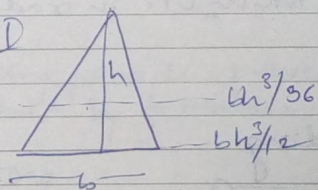 D
h
bh³/36
bh³/12
b